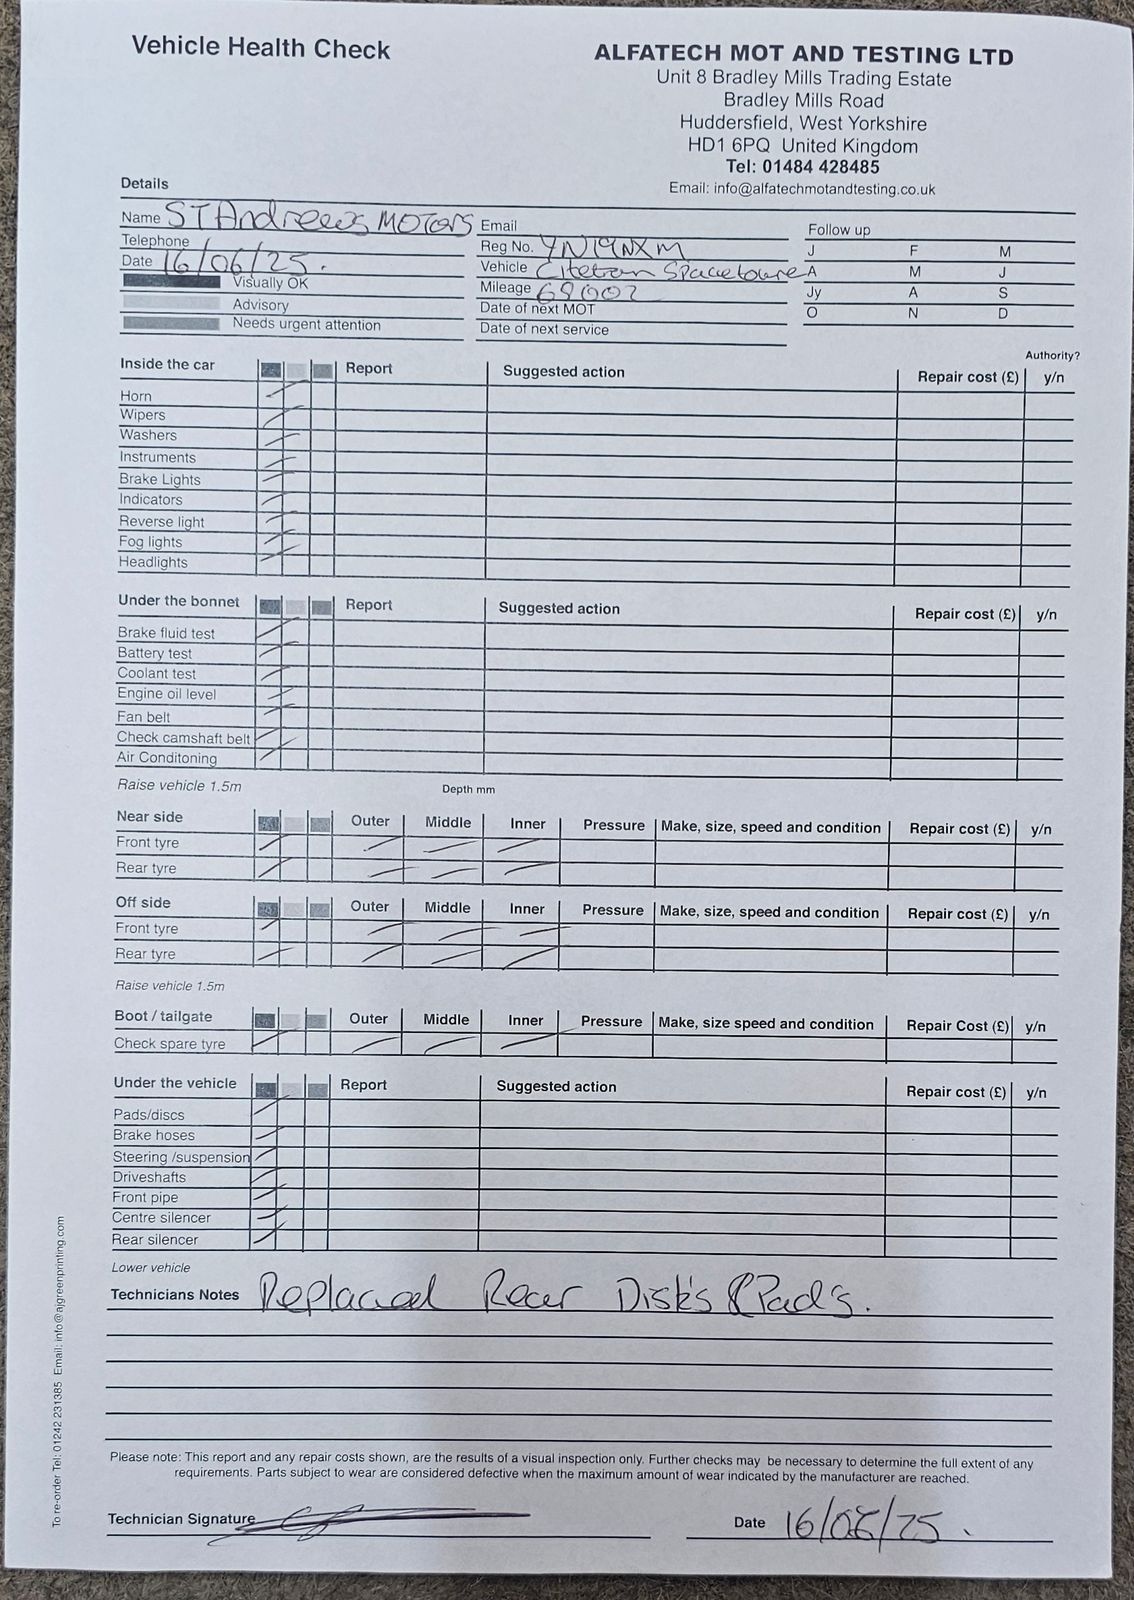 Vehicle Health Check
ALFATECH MOT AND TESTING LTD
Unit 8 Bradley Mills Trading Estate
Bradley Mills Road
Huddersfield, West Yorkshire
HD1 6PQ United Kingdom
Tel: 01484 428485
Email: info@alfatechmotandtesting.co.uk
Details
Name ST Andrews MOTORS
Telephone
Date 16/06/25.
Visually OK
Advisory
Needs urgent attention
Email
Reg No. YN19NXM
Vehicle Citeton Spacetourer
Mileage 68002
Date of next MOT
Date of next service
Follow up
J F M
A M J
Jy A S
O N D
Authority?
Inside the car Report Suggested action Repair cost (£) y/n
Horn
Wipers
Washers
Instruments
Brake Lights
Indicators
Reverse light
Fog lights
Headlights
Under the bonnet Report Suggested action Repair cost (£) y/n
Brake fluid test
Battery test
Coolant test
Engine oil level
Fan belt
Check camshaft belt
Air Conditoning
Raise vehicle 1.5m Depth mm
Near side Outer Middle Inner Pressure Make, size, speed and condition Repair cost (£) y/n
Front tyre
Rear tyre
Off side Outer Middle Inner Pressure Make, size, speed and condition Repair cost (£) y/n
Front tyre
Rear tyre
Raise vehicle 1.5m
Boot / tailgate Outer Middle Inner Pressure Make, size speed and condition Repair Cost (£) y/n
Check spare tyre
Under the vehicle Report Suggested action Repair cost (£) y/n
Pads/discs
Brake hoses
Steering /suspension
Driveshafts
Front pipe
Centre silencer
Rear silencer
Lower vehicle
Technicians Notes Replaced Rear Disk's & Pad's.
Please note: This report and any repair costs shown, are the results of a visual inspection only. Further checks may be necessary to determine the full extent of any
requirements. Parts subject to wear are considered defective when the maximum amount of wear indicated by the manufacturer are reached.
Technician Signature
Date 16/06/25.
To re-order Tel: 01242 231385 Email: info@ajgreenprinting.com